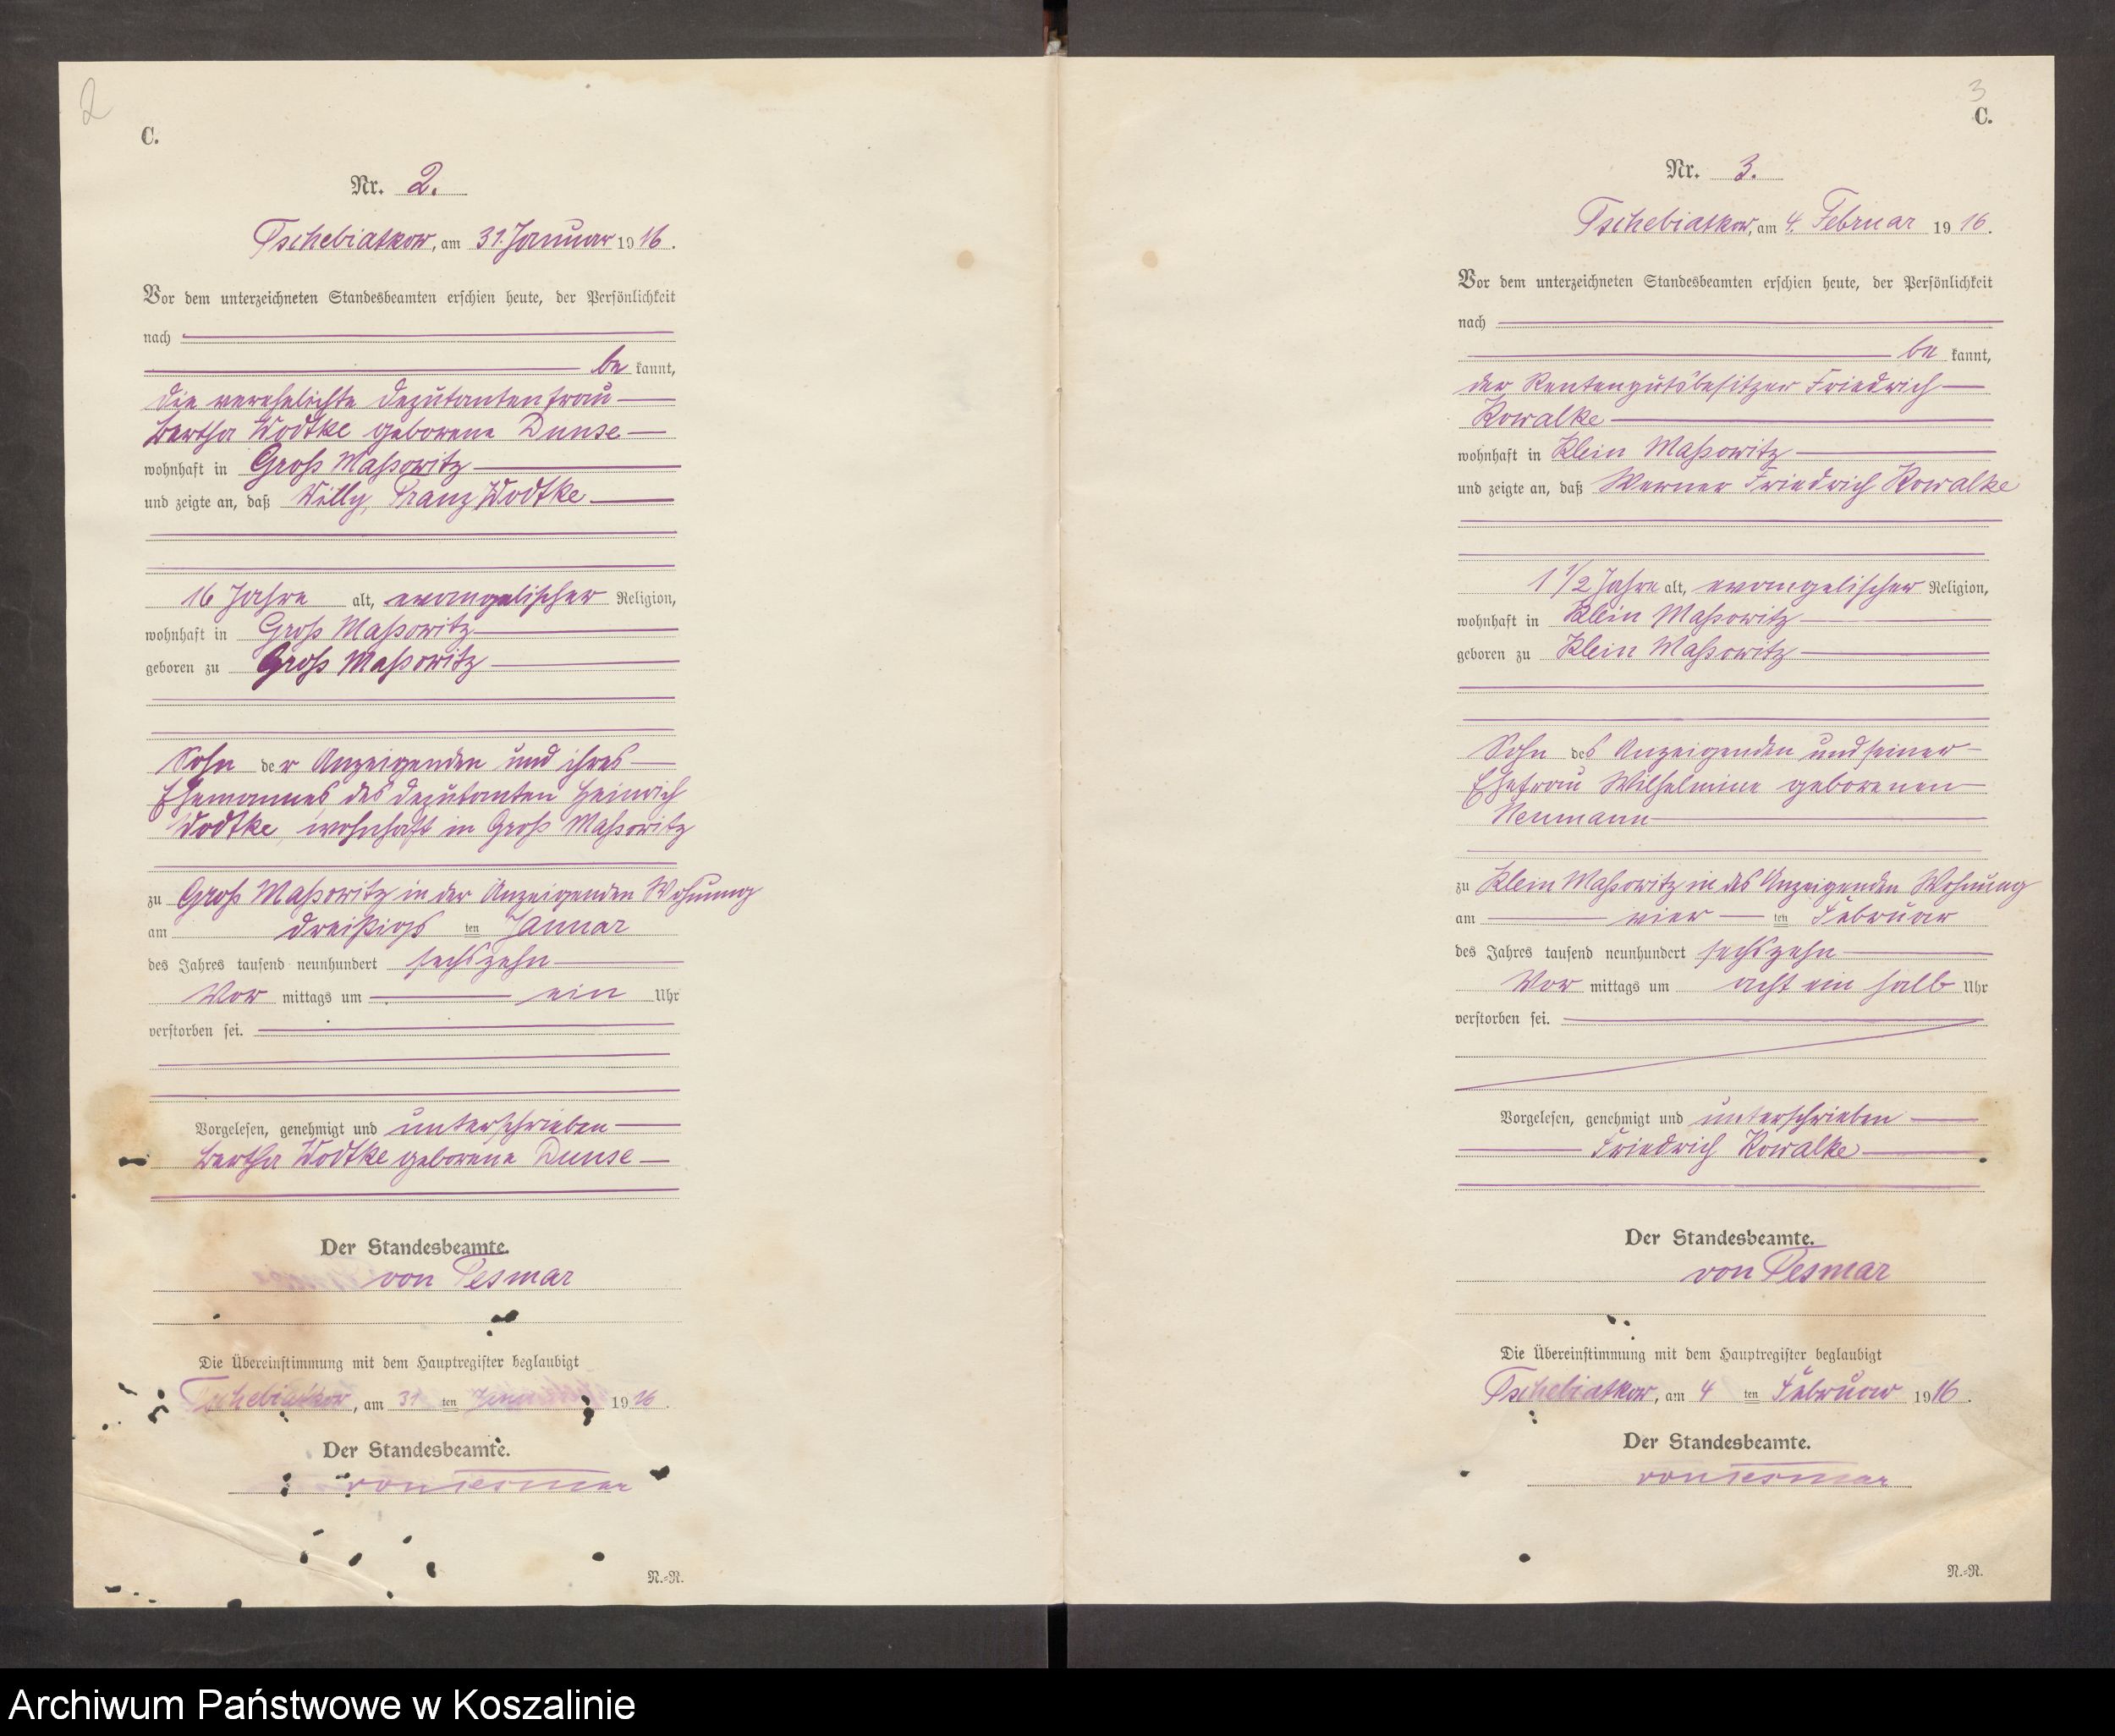 2
C.
Nr. 2.
Tschebiatkow, am 31. Januar 1916.
Vor dem unterzeichneten Standesbeamten erschien heute, der Persönlichkeit
nach
be kannt,
die verehelichte Deputantenfrau
Bertha Wodtke geborene Dunse
wohnhaft in Groß Massowitz
und zeigte an, daß Willy, Franz Wodtke
16 Jahre alt, evangelischer Religion,
wohnhaft in Groß Massowitz
geboren zu Groß Massowitz
Sohn der Anzeigenden und ihres
Ehemannes des Deputanten Heinrich
Wodtke, wohnhaft in Groß Massowitz
zu Groß Massowitz in der Anzeigenden Wohnung
am dreißigs ten Januar
des Jahres tausend neunhundert sechszehn
Vor mittags um ein Uhr
verstorben sei.
Vorgelesen, genehmigt und unterschrieben
Bertha Wodtke geborene Dunse
Der Standesbeamte.
von Tesmar
Die Übereinstimmung mit dem Hauptregister beglaubigt
Tschebiatkow, am 31 ten Januar 1916.
Der Standesbeamte.
von Tesmar
N.=R.
3
C.
Nr. 3.
Tschebiatkow, am 4. Februar 1916.
Vor dem unterzeichneten Standesbeamten erschien heute, der Persönlichkeit
nach
be kannt,
der Rentengutsbesitzer Friedrich
Kowalke
wohnhaft in Klein Massowitz
und zeigte an, daß Werner Friedrich Kowalke
1 1/2 Jahre alt, evangelischer Religion,
wohnhaft in Klein Massowitz
geboren zu Klein Massowitz
Sohn des Anzeigenden und seiner
Ehefrau Wilhelmine geborenen
Neumann
zu Klein Massowitz in des Anzeigenden Wohnung
am vier ten Februar
des Jahres tausend neunhundert sechszehn
Vor mittags um acht ein halb Uhr
verstorben sei.
Vorgelesen, genehmigt und unterschrieben
Friedrich Kowalke
Der Standesbeamte.
von Tesmar
Die Übereinstimmung mit dem Hauptregister beglaubigt
Tschebiatkow, am 4 ten Februar 1916.
Der Standesbeamte.
von Tesmar
N.=R.
Archiwum Państwowe w Koszalinie